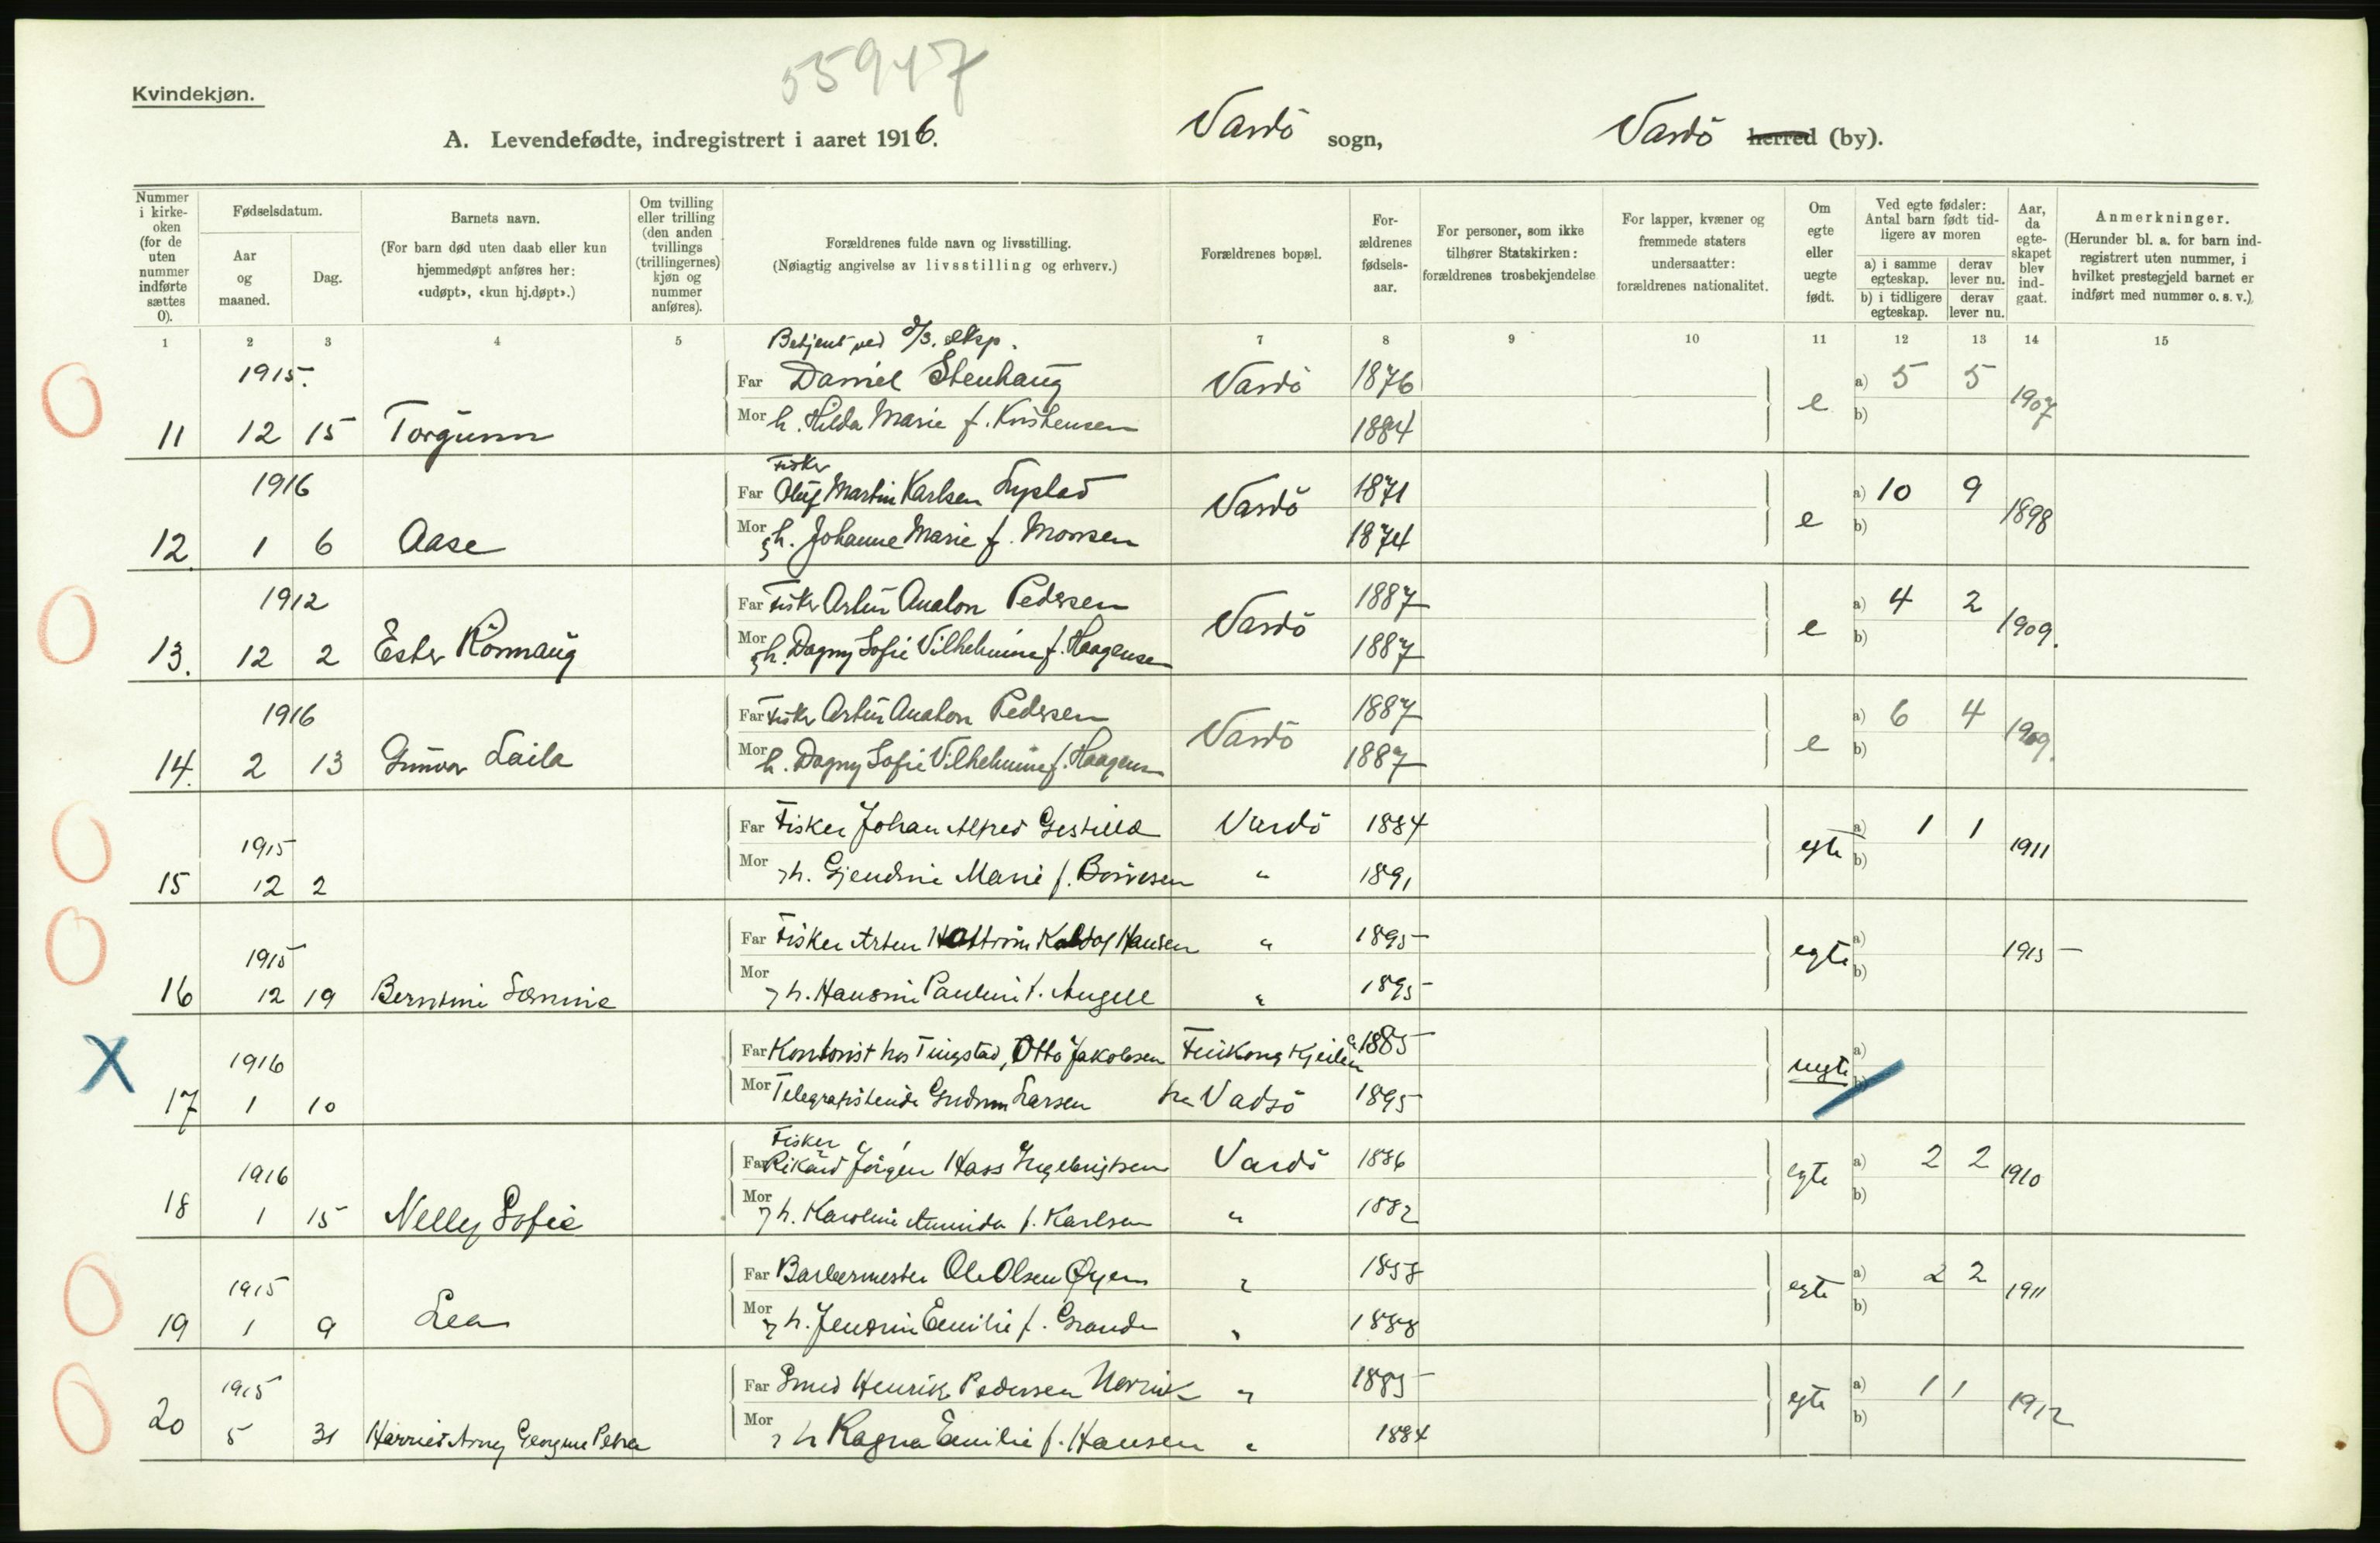 55947
Kvindekjøn.
A. Levendefødte, indregistrert i aaret 1916. Vardö sogn, Vardö herred (by).
Nummer i kirkeoken (for de uten nummer indførte sættes 0).
Fødselsdatum.
Aar og maaned.
Dag.
Barnets navn.
(For barn død uten daab eller kun hjemmedøpt anføres her: «udøpt», «kun hj.døpt».)
Om tvilling eller trilling (den anden tvillings (trillingernes) kjøn og nummer anføres).
Forældrenes fulde navn og livsstilling.
(Nøiagtig angivelse av livsstilling og erhverv.)
Forældrenes bopæl.
Forældrenes fødselsaar.
For personer, som ikke tilhører Statskirken: forældrenes trosbekjendelse
For lapper, kvæner og fremmede staters undersaatter: forældrenes nationalitet.
Om egte eller uegte født.
Ved egte fødsler: Antal barn født tidligere av moren
a) i samme egteskap. derav lever nu.
b) i tidligere egteskap. derav lever nu.
Aar, da egteskapet blev indgaat.
Anmerkninger.
(Herunder bl. a. for barn indregistrert uten nummer, i hvilket prestegjeld barnet er indført med nummer o. s. v.)
1 2 3 4 5 7 8 9 10 11 12 13 14 15
Betjent ved D/S. eksp.
1915. Far Daniel Stenhaug Vardö 1876 a) 5 5
11 12 15 Torgunn Mor h. Hilda Marie f. Kristensen 1884 e b) 1907
Fisker
1916 Far Oluf Martin Karlsen Vardö 1871 a) 10 9
12. 1 6 Aase Mor h. Johanne Marie f. 1874 e b) 1898
1912 Far Fisker Artur Anaton Pedersen Vardö 1887 a) 4 2
13. 12 2 Ester Rönnaug Mor h. Dagny Sofie Vilhelmine f. Haagensen 1887 e b) 1909.
1916 Far Fisker Artur Anaton Pedersen Vardö 1887 a) 6 4
14. 2 13 Gunvor Laila Mor h. Dagny Sofie Vilhelmine f. Haagens 1887 e b) 1909.
1915 Far Fisker Johan Alfred Vardö 1884 a) 1 1
15 12 2 Mor h. Gjendine Marie f. " 1891 egte b) 1911
1915 Far Fisker Artur Hansen " 1895 a)
16 12 19 Mor h. Hansine Pauline f. Angell " 1895 egte b) 1915
X 1916 Far Kontorist hos Tingstad, Otto Jakobsen 1885 a)
17 1 10 Mor Telegrafistinde Gudrun Larsen fra Vadsö 1895 uegte b)
Fisker
1916 Far Rikard Jörgen Hass Ingebrigtsen Vardö 1886 a) 2 2
18 1 15 Nelly Sofie Mor h. Karoline f. Karlsen " 1882 egte b) 1910
1915 Far Barbermester Ole Olsen Øyen " 1858 a) 2 2
19 1 9 Lea Mor h. Jensine Emilie f. Grande " 1888 egte b) 1911
1915 Far Smed Henrik Pedersen " 1885 a) 1 1
20 5 31 Harriet Georgine Petra Mor h Ragna Emilie f. Hansen " 1884 egte b) 1912